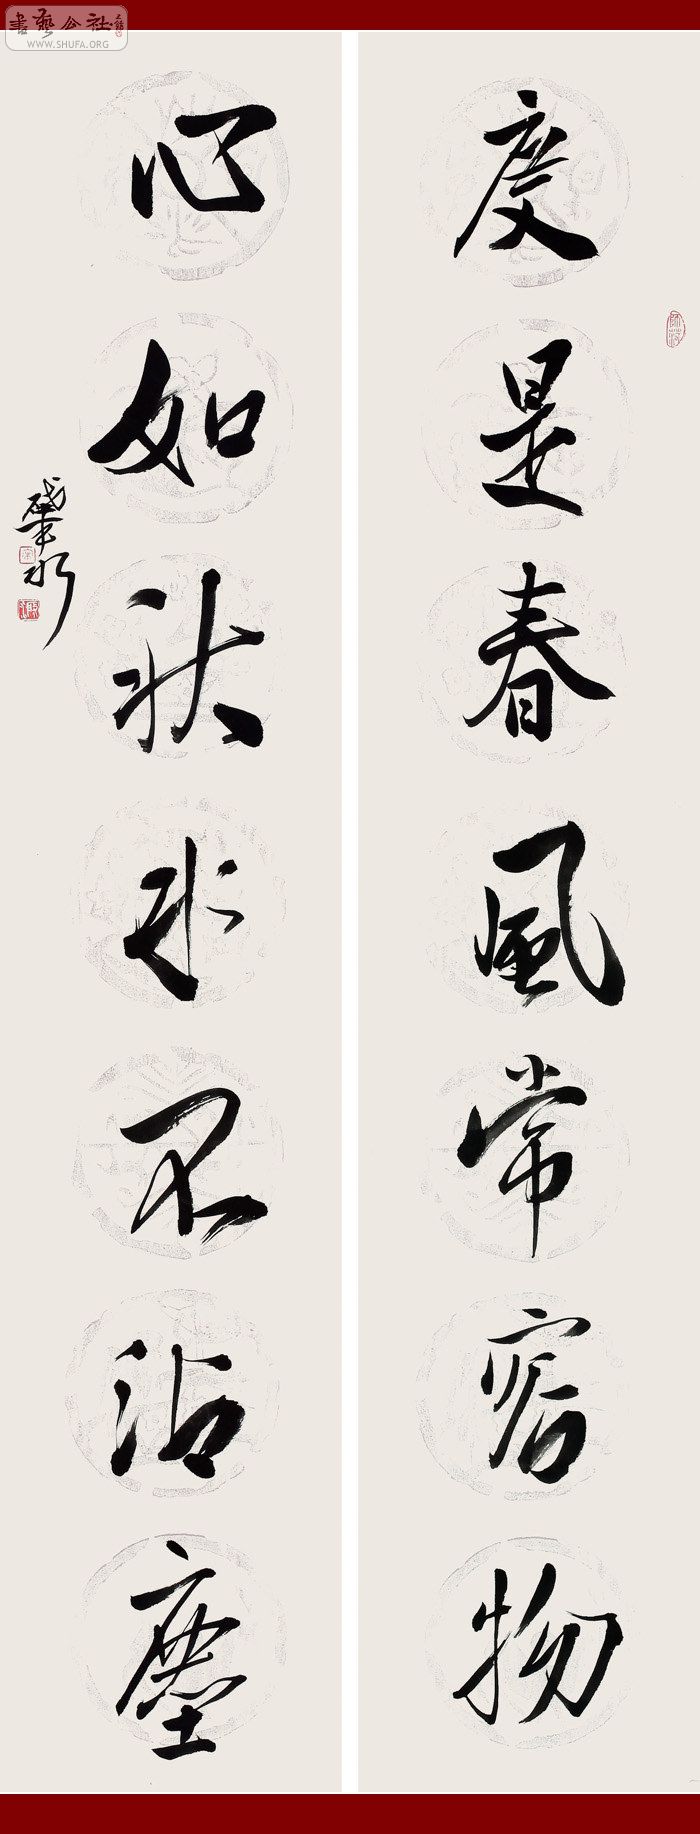 度是春風常容物
心如秋水不沾塵
書藝公社
WWW.SHUFA.ORG